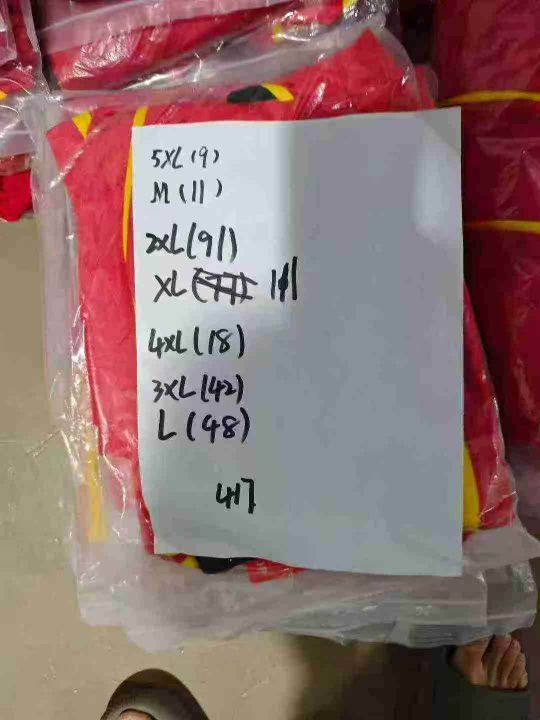 5XL(9)
M(11)
2XL(91)
XL 111
4XL(18)
3XL(42)
L(48)
417